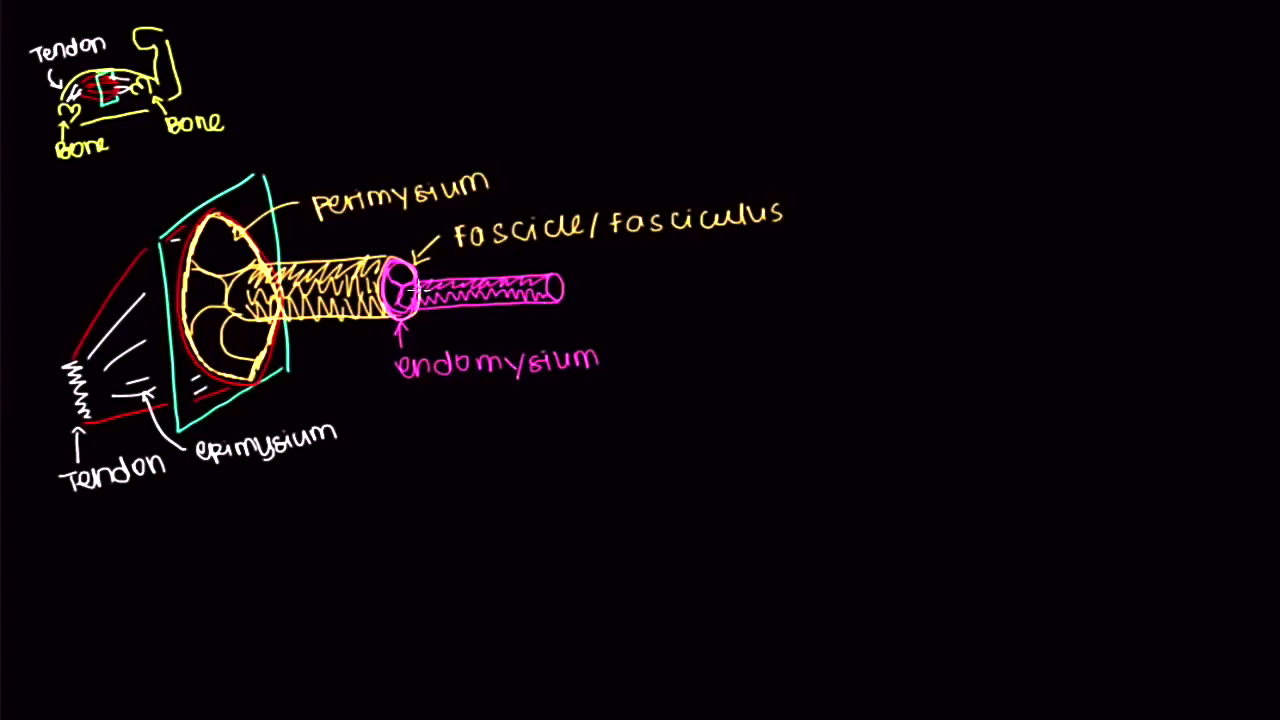 Tendon
Bone
Bone
perimysium
fascicle/fasciculus
endomysium
epimysium
Tendon